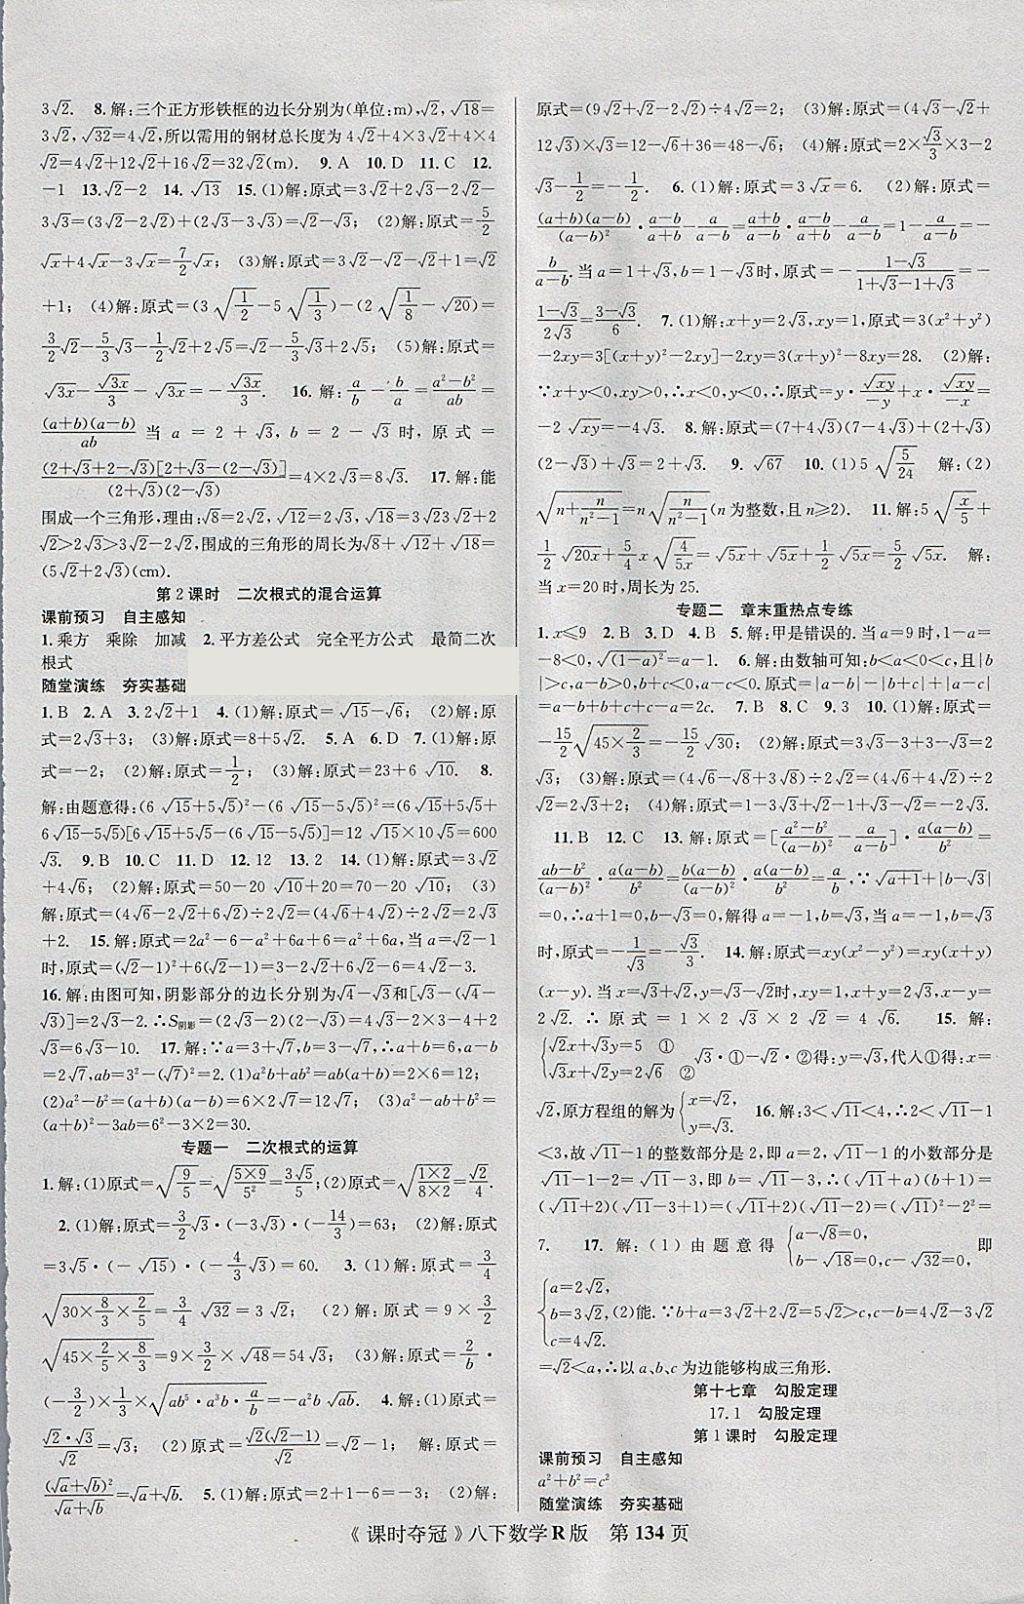 3√2. 8.解:三个正方形铁框的边长分别为(单位:m),√2,√18=
3√2,√32=4√2,所以需用的钢材总长度为4√2+4×3√2+4×4
√2=4√2+12√2+16√2=32√2(m). 9.A 10.D 11.C 12.
-1 13.√2-2 14.√13 15.(1)解:原式=3√2+2√3-2√2-
3√3=(3√2-2√2)+(2√3-3√3)=√2-√3; (2)解:原式=5/2
√x+4√x-3√x=7/2√x; (3)解:原式=3√2-√2-√2+1=√2
+1; (4)解:原式=(3√(1/2)-5√(1/3))-(2√(1/8)-√20)=
3/2√2-5/3√3-1/2√2+2√5=√2-5/3√3+2√5; (5)解:原式=
√3x-√3x/3-√3x=-√3x/3. 16.解:a/b-b/a=(a²-b²)/ab=
(a+b)(a-b)/ab 当a=2+√3,b=2-√3时,原式=
(2+√3+2-√3)[2+√3-(2-√3)]/(2+√3)(2-√3)=4×2√3=8√3. 17.解:能
围成一个三角形,理由:√8=2√2,√12=2√3,√18=3√23√2+2
√2>2√3>3√2-2√2,围成的三角形的周长为√8+√12+√18=
(5√2+2√3)(cm).
第2课时 二次根式的混合运算
课前预习 自主感知
1.乘方 乘除 加减 2.平方差公式 完全平方公式 最简二次
根式
随堂演练 夯实基础
1.B 2.A 3.2√2+1 4.(1)解:原式=√15-√6; (2)解:原
式=2√3+3; (3)解:原式=8+5√2. 5.A 6.D 7.(1)解:原
式=-2; (2)解:原式=1/2; (3)解:原式=23+6√10. 8.
解:由题意得:(6√15+5√5)²-(6√15-5√5)²=(6√15+5√5+
6√15-5√5)[6√15+5√5-(6√15-5√5)]=12√15×10√5=600
√3. 9.B 10.C 11.D 12.12 13.2 14.(1)解:原式=3√2
+4√6; (2)解:原式=50-20√10+20=70-20√10; (3)
解:原式=(4√6-2√2+6√2)÷2√2=(4√6+4√2)÷2√2=2√3
+2. 15.解:原式=2a²-6-a²+6a+6=a²+6a,当a=√2-1
时,原式=(√2-1)²+6(√2-1)=3-2√2+6√2-6=4√2-3.
16.解:由图可知,阴影部分的边长分别为√4-√3和[√3-(√4-
√3)]=2√3-2.∴S阴影=(2√3-2)(2-√3)=4√3-2×3-4+2
√3=6√3-10. 17.解:∵a=3+√7,b=3-√7,∴a+b=6,a-b
=2√7,ab=3²-(√7)²=2.(1)a²b+ab²=ab(a+b)=2×6=12;
(2)a²-b²=(a+b)(a-b)=6×2√7=12√7; (3)a²-ab+b²=
(a+b)²-3ab=6²-3×2=30.
专题一 二次根式的运算
1.解:(1)原式=√(9/5)=√(5×9/5²)=3√5/5;(2)原式=√(1×2/8×2)=√2/4.
2.(1)解:原式=3/2√3·(-3√3)·(-14/3)=63; (2)解:原式
=3√5·(-√15)·(-4/3√3)=60. 3.(1)解:原式=3/4
√(30×8/3×2/5)=3/4√32=3√2; (2)解:原式=9×3/2
√(45×2/5×8/3)=9×3/2×√48=54√3; (3)解:原式=2/b·
(-3/2)×1/3×√(ab⁵·a/b)=-a/b√(ab⁵·a/b)=-ab. 4.解:(1)原式=
√2·√3/√2=√3; (2)原式=√2(√2-1)/2(√2-1)=√2/2; 解:原式=
(√a+√b)²/√a+√b=√a+√b. 5.(1)解:原式=2+1-6=-3; (2)解:
原式=(9√2+√2-2√2)÷4√2=2; (3)解:原式=(4√3-√2+
12√3)×√3=12-√6+36=48-√6; (4)解:原式=2×√3/3×3-2
√3-1/2=-1/2. 6.(1)解:原式=3√x=6. (2)解:原式=
(a+b)(a-b)/(a-b)²·(a-b)/(a+b)-a/(a-b)=(a+b)/(a-b)·(a-b)/(a+b)-a/(a-b)=1-a/(a-b)=
-b/(a-b).当a=1+√3,b=1-√3时,原式=-(1-√3)/(1+√3-1+√3)=
-(1-√3)/2√3=(3-√3)/6. 7.(1)解:x+y=2√3,xy=1,原式=3(x²+y²)
-2xy=3[(x+y)²-2xy]-2xy=3(x+y)²-8xy=28. (2)解:
∵x+y<0,xy>0,∴x<0,y<0,∴原式=y·√xy/-y+x·√xy/-x=
-2√xy=-4√3. 8.解:原式=(7+4√3)(7-4√3)+(2+√3)
(2-√3)+√3=2+√3. 9.√67 10.(1)5√(5/24) 解:(2)
√(n+n/(n²-1))=n√(n/(n²-1))(n为整数,且n≥2). 11.解:5√(x/5)+
1/2√20x+5/4x√(4/5x)=√5x+√5x+1/2√5x=5/2√5x. 解:
当x=20时,周长为25.
专题二 章末重热点专练
1.x≤9 2.B 3.D 4.B 5.解:甲是错误的.当a=9时,1-a=
-8<0,√(1-a)²=a-1. 6.解:由数轴可知:b<a<0<c,且|b
|>c,a-b>0,b+c<0,a-c<0,原式=|a-b|-|b+c|+|a-c|
=a-b+b+c+c-a=2c. 7.B 8.C 9.3 10.(1)解:原式=
-15/2√(45×2/3)=-15/2√30; (2)解:原式=3√3-3+3-√3=2
√3; (3)解:原式=(4√6-√8+3√8)÷2√2=(4√6+4√2)÷2
√2=2√3+2; (4)解:原式=1-3√3+√2-1-√2+√3=-2√3.
11.B 12.C 13.解:原式=[(a²-b²)/(a-b)²-a/(a-b)]·a(a-b)/b²=
(ab-b²)/(a-b)²·a(a-b)/b²=b(a-b)/(a-b)²·a(a-b)/b²=a/b,∵√(a+1)+|b-√3|
=0,∴a+1=0,b-√3=0,解得a=-1,b=√3,当a=-1,b=√3
时,原式=-1/√3=-√3/3. 14.解:原式=xy(x²-y²)=xy(x+y)
(x-y).当x=√3+√2,y=√3-√2时,xy=1,x+y=2√3,x-y=
2√2.∴原式=1×2√3×2√2=4√6. 15.解:
{√2x+√3y=5 ①
√3x+√2y=2√6 ② √3·①-√2·②得:y=√3,代人①得:x=
√2,原方程组的解为{x=√2, y=√3. 16.解:3<√11<4,∴2<√11-1
<3,故√11-1的整数部分是2,即a=2,√11-1的小数部分是
√11-1-2=√11-3,即b=√11-3,∴(√11+a)(b+1)=
(√11+2)(√11-3+1)=(√11+2)(√11-2)=(√11)²-2²=
7. 17.解:(1)由题意得{a-√8=0, b-√18=0,c-√32=0, 即
{a=2√2,
b=3√2,(2)能.∵b+a=3√2+2√2=5√2>c,c-b=4√2-3√2
c=4√2.
=√2<a,∴以a、b、c为边能够构成三角形.
第十七章 勾股定理
17.1 勾股定理
第1课时 勾股定理
课前预习 自主感知
a²+b²=c²
随堂演练 夯实基础
《课时夺冠》八下数学R版 第134页